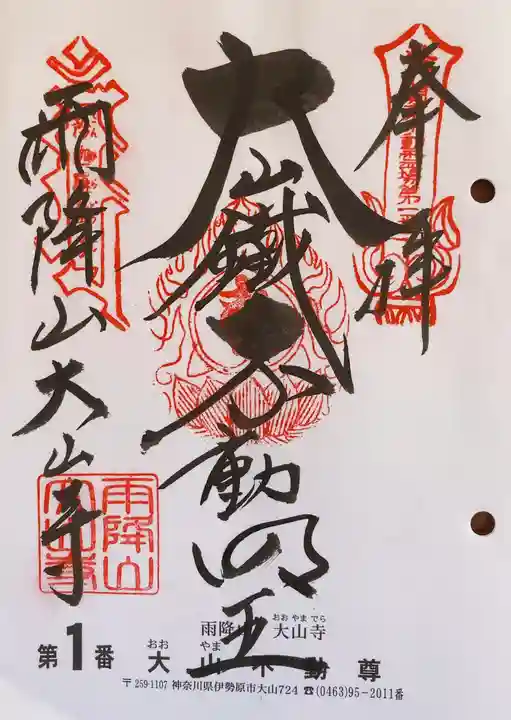 奉拝
大山鐵不動明王
雨降山大山寺
雨降山
大山寺
雨降山 大山寺
おお やま でら
第1番 大山不動尊
おお やま
〒259-1107 神奈川県伊勢原市大山724 ☎(0463)95-2011番